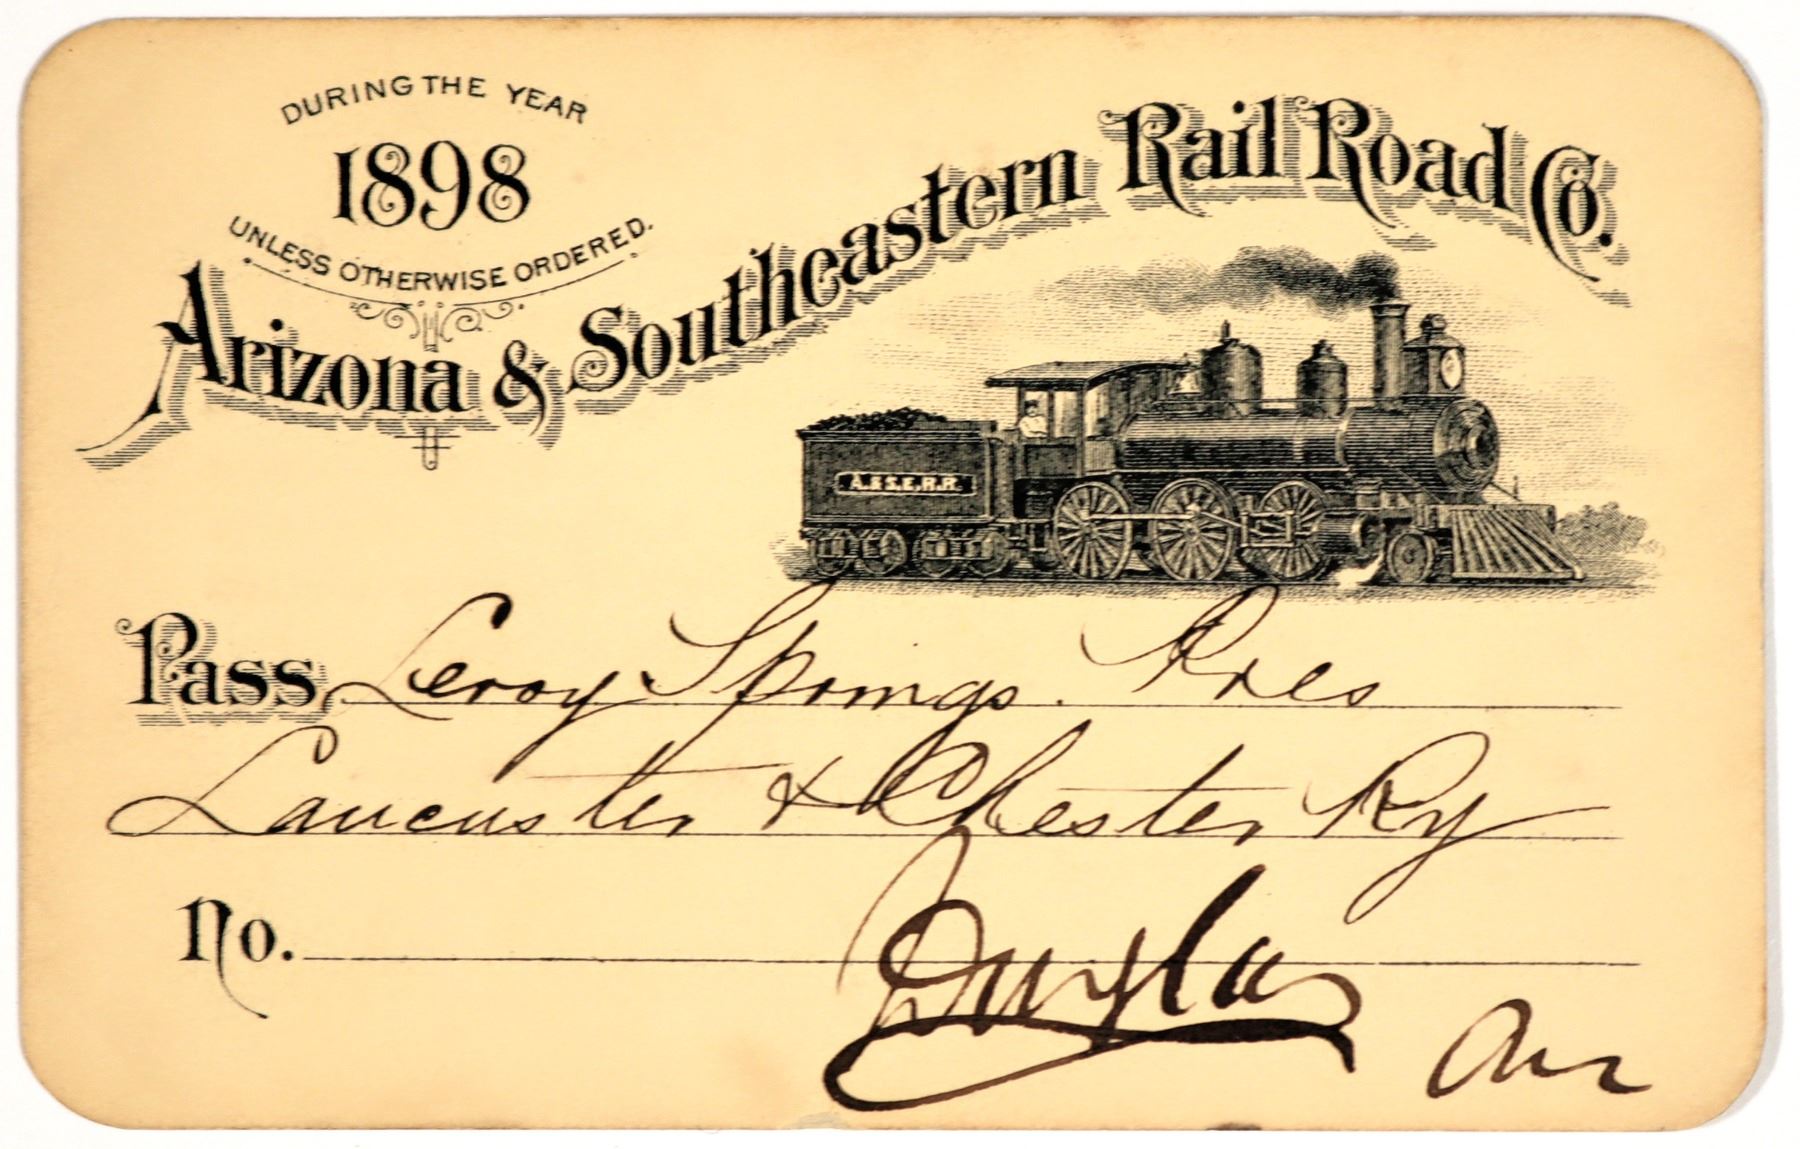 DURING THE YEAR
1898
UNLESS OTHERWISE ORDERED.
Arizona & Southeastern Rail Road Co.
A. & S.E.R.R.
Pass Leroy Springs. Pres
Lancaster & Chester Ry
No.
Douglas